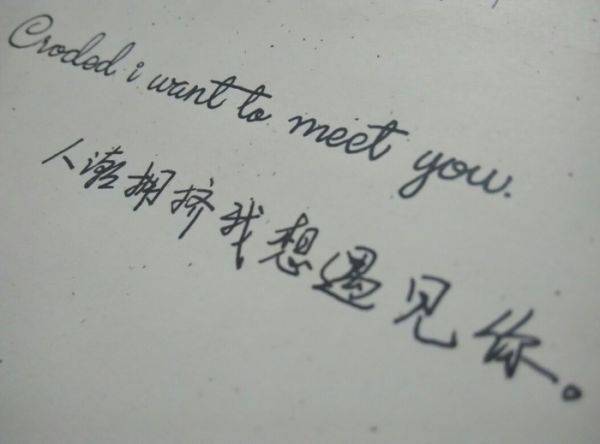 Croded i want to meet you.
人潮拥挤我想遇见你。